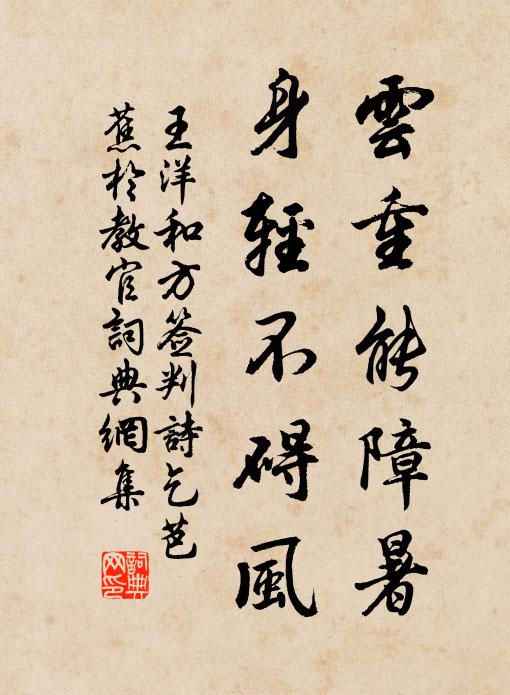 雲重能障暑
身輕不碍風
王洋和方簽判詩乞芭
蕉於教官詞典網集
詞典网印